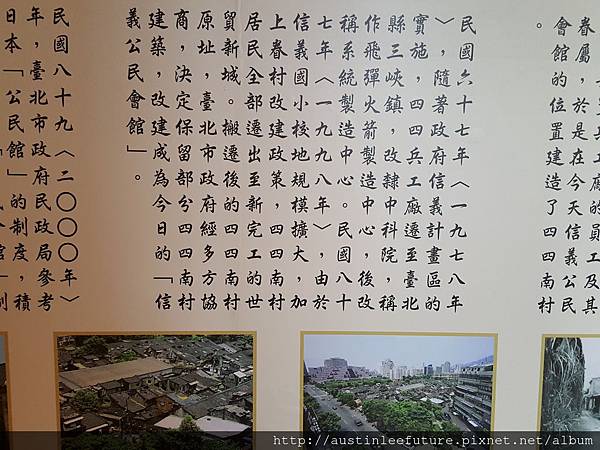 眷屬,於是在今天的信義公民
會館的位置建造了四四南村
。
民國六十七年〈一九七八年
〉,隨著政府信義計畫區的
實施,四四兵工廠遷至臺北
縣三峽鎮,改隸中科院,稱
作飛彈火箭製造中心,後改
稱系統製造中心。民國八十
七年〈一九九八年〉,由於
信義國小校地規模擴大,加
上眷村改建政策,四四南村
居民全部遷出至新完工的世
貿新城。搬遷後的四四南村
原址,臺北市政府經多方協
商,決定保留部分四四南村
建築,改建成為今日的「信
義公民會館」。
民國八十九〈二〇〇〇年〉
年,臺北市政府民政局參考
日本「公民館」的制度,積
http://austinleefuture.pixnet.net/album